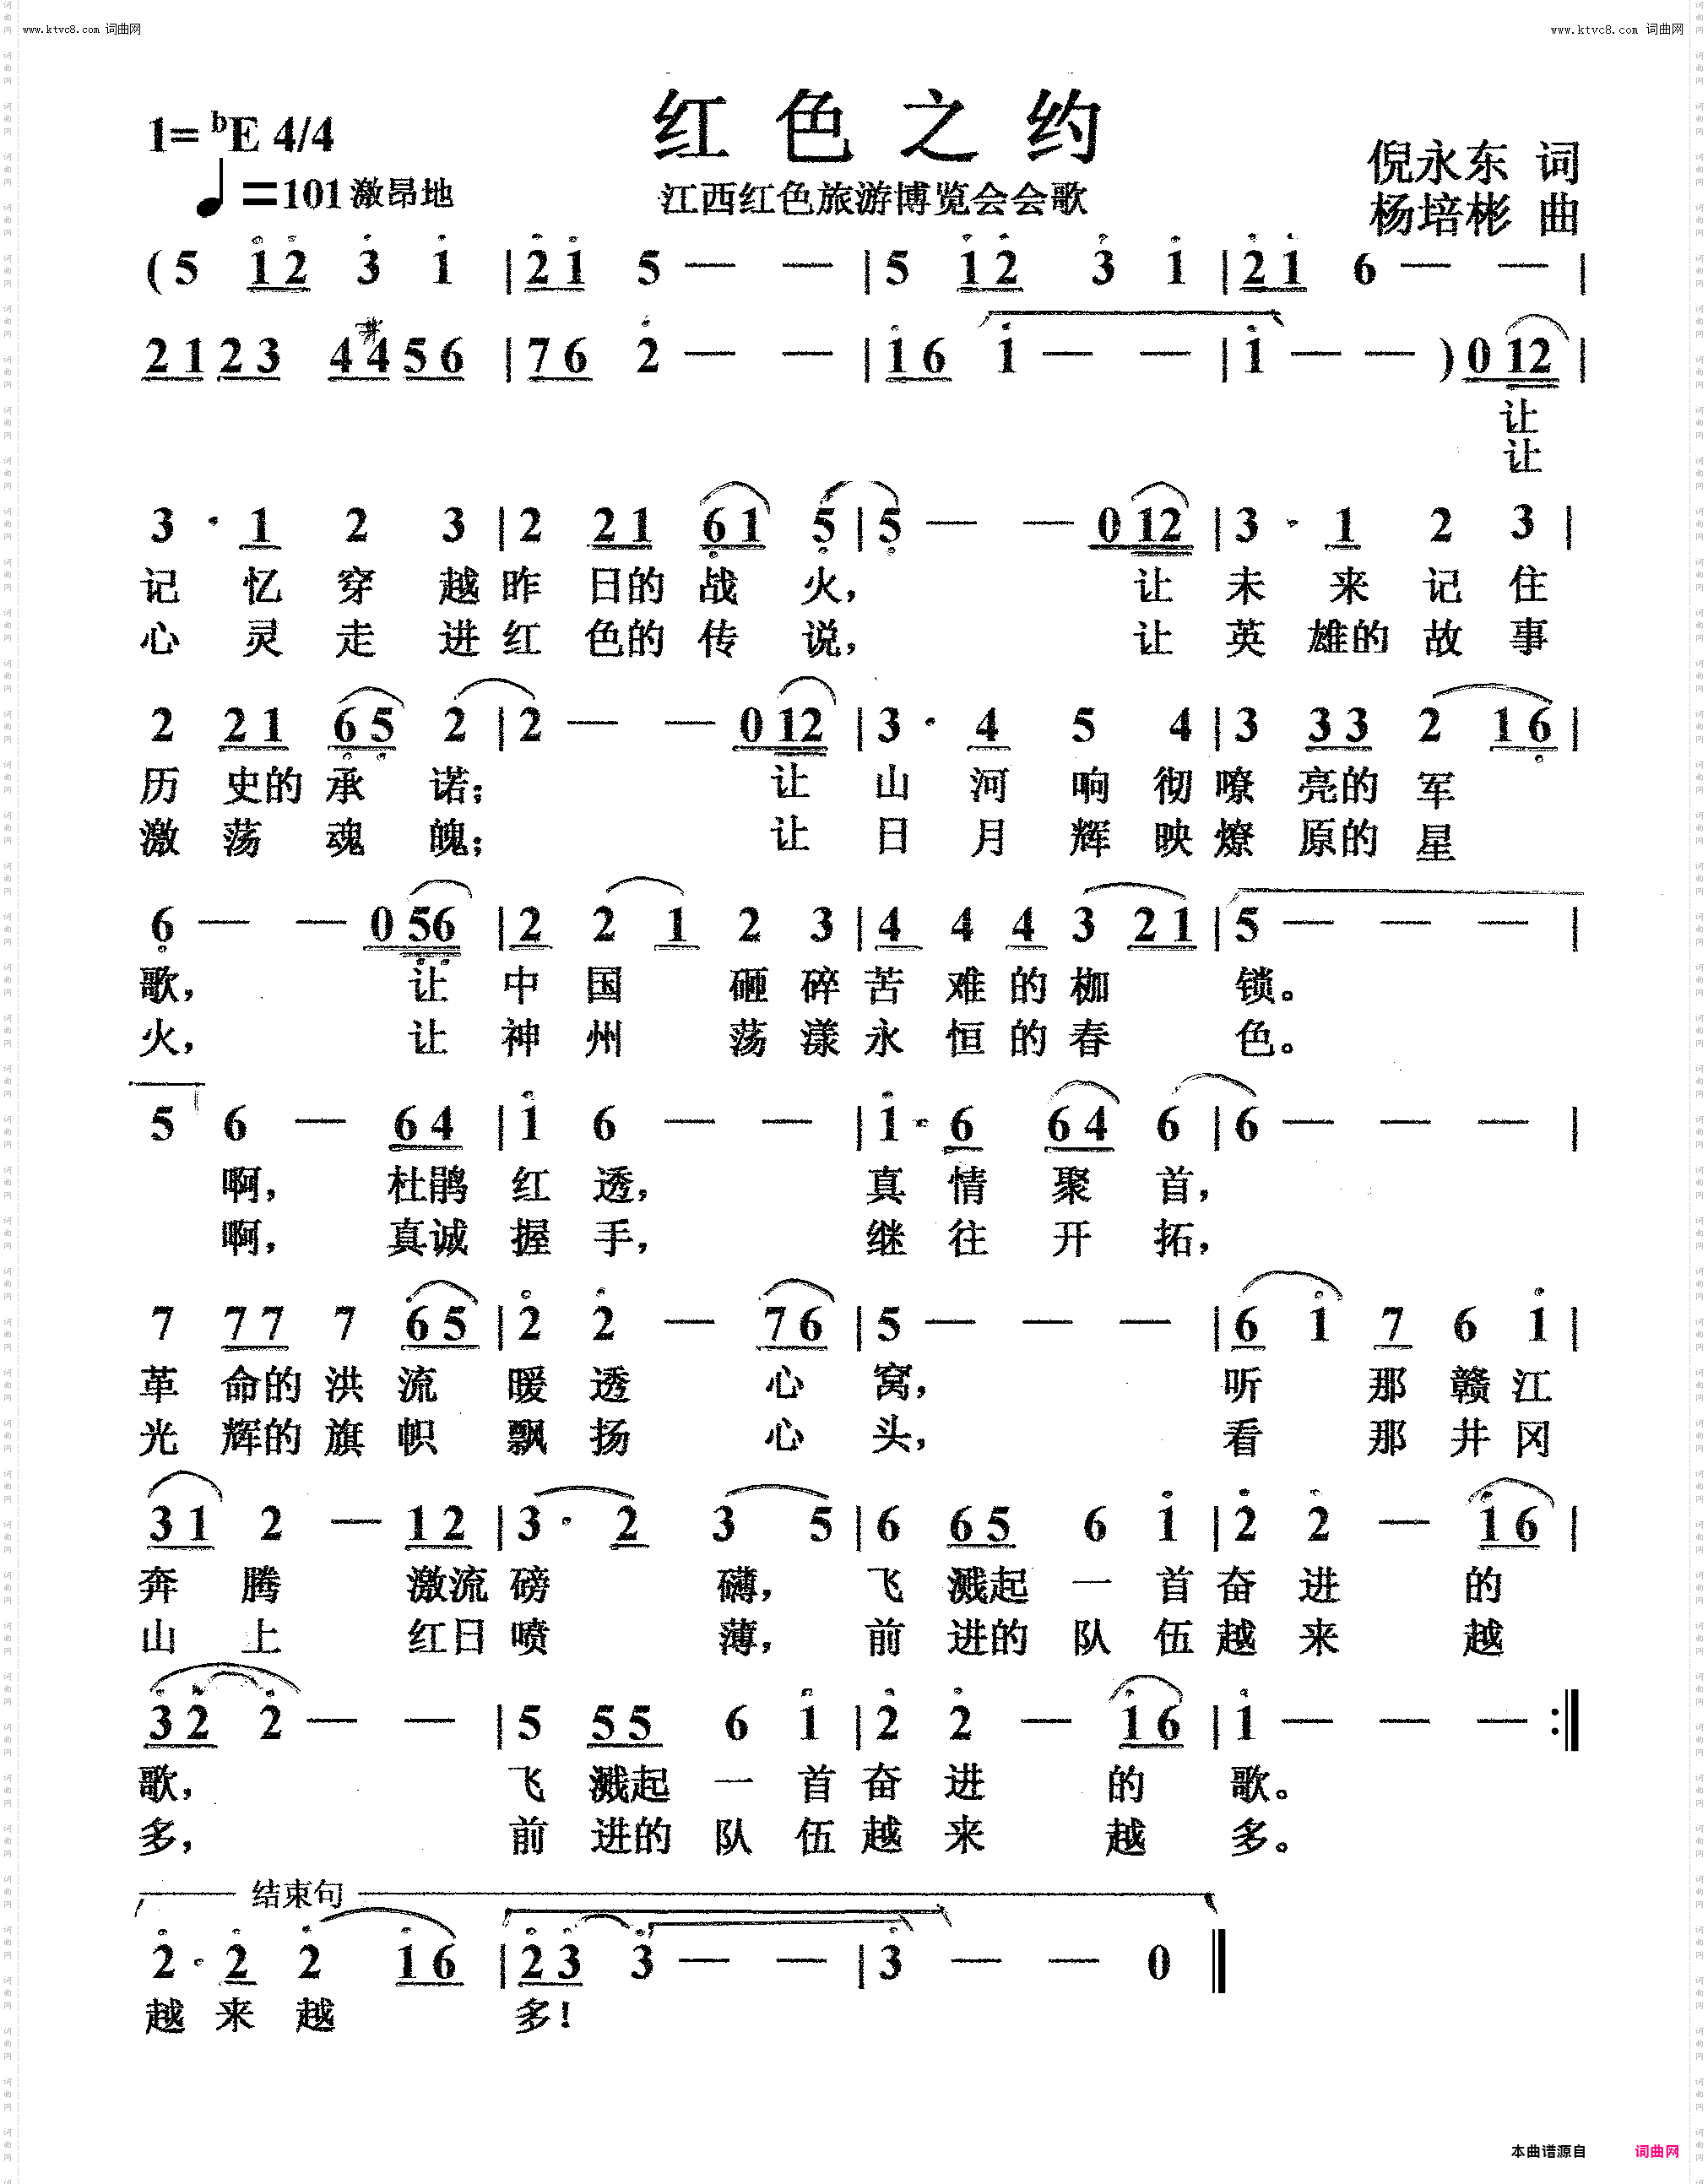 www.ktvc8.com 词曲网
www.ktvc8.com 词曲网
红色之约
1= bE 4/4
♩=101 激昂地
江西红色旅游博览会会歌
倪永东 词
杨培彬 曲
( 5 1 2 3 1 | 2 1 5 — — | 5 1 2 3 1 | 2 1 6 — — |
2 1 2 3 4 #4 5 6 | 7 6 2 — — | 1 6 1 — — | 1 — — ) 0 12 |
让
让
3 · 1 2 3 | 2 2 1 6 1 5 | 5 — — 0 12 | 3 · 1 2 3 |
记 忆 穿 越 昨 日的 战 火, 让 未 来 记 住
心 灵 走 进 红 色的 传 说, 让 英 雄的 故 事
2 2 1 6 5 2 | 2 — — 0 12 | 3 · 4 5 4 | 3 3 3 2 1 6 |
历 史的 承 诺; 让 山 河 响 彻 嘹 亮的 军
激 荡 魂 魄; 让 日 月 辉 映 燎 原的 星
6 — — 0 56 | 2 2 1 2 3 | 4 4 4 3 2 1 | 5 — — — |
歌, 让 中 国 砸 碎 苦 难 的 枷 锁。
火, 让 神 州 荡 漾 永 恒 的 春 色。
5 6 — 6 4 | 1 6 — — | 1 · 6 6 4 6 | 6 — — — |
啊, 杜鹃 红 透, 真 情 聚 首,
啊, 真诚 握 手, 继 往 开 拓,
7 7 7 7 6 5 | 2 2 — 7 6 | 5 — — — | 6 1 7 6 1 |
革 命的 洪 流 暖 透 心 窝, 听 那 赣 江
光 辉的 旗 帜 飘 扬 心 头, 看 那 井 冈
3 1 2 — 1 2 | 3 · 2 3 5 | 6 6 5 6 1 | 2 2 — 1 6 |
奔 腾 激流 磅 礴, 飞 溅起 一 首 奋 进 的
山 上 红日 喷 薄, 前 进的 队 伍 越 来 越
3 2 2 — — | 5 5 5 6 1 | 2 2 — 1 6 | 1 — — — :|
歌, 飞 溅起 一 首 奋 进 的 歌。
多, 前 进的 队 伍 越 来 越 多。
结束句
2 · 2 2 1 6 | 2 3 3 — — | 3 — — 0 ‖
越 来 越 多!
本曲谱源自 词曲网